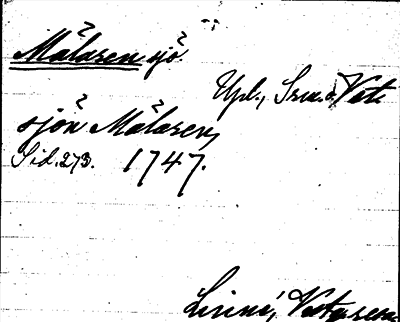 Mälaren sjö
Upl., Srm. o. Vstm
sjön Mälaren,
Sid. 273. 1747.
Linné, Vestg. resa